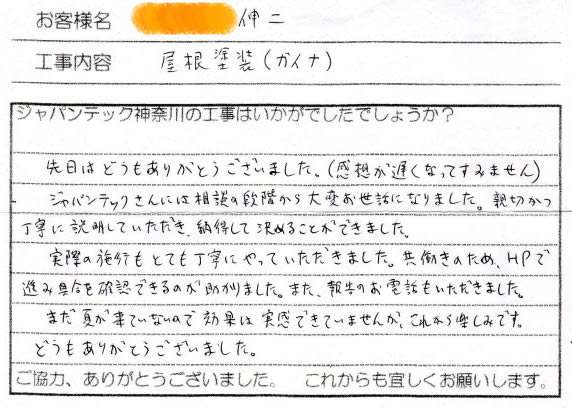 お客様名 伸二
工事内容 屋根塗装(ガイナ)
ジャパンテック神奈川の工事はいかがでしたでしょうか?
先日はどうもありがとうございました。(感想が遅くなってすみません)
ジャパンテックさんには相談の段階から大変お世話になりました。親切かつ
丁寧に説明していただき、納得して決めることができました。
実際の施行もとても丁寧にやっていただきました。共働きのため、HPで
進み具合を確認できるのが助かりました。また、報告のお電話もいただきました。
まだ夏が来ていないので効果は実感できていませんが、これから楽しみです。
どうもありがとうございました。
ご協力、ありがとうございました。 これからも宜しくお願いします。